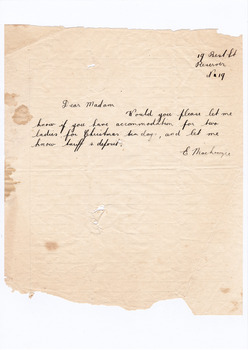 19
Reservoir
N 19
Dear Madam
Would you please let me
know if you have accommodation for two
ladies for Christmas ten days, and let me
know tariff & deposit.
E Mackenzie